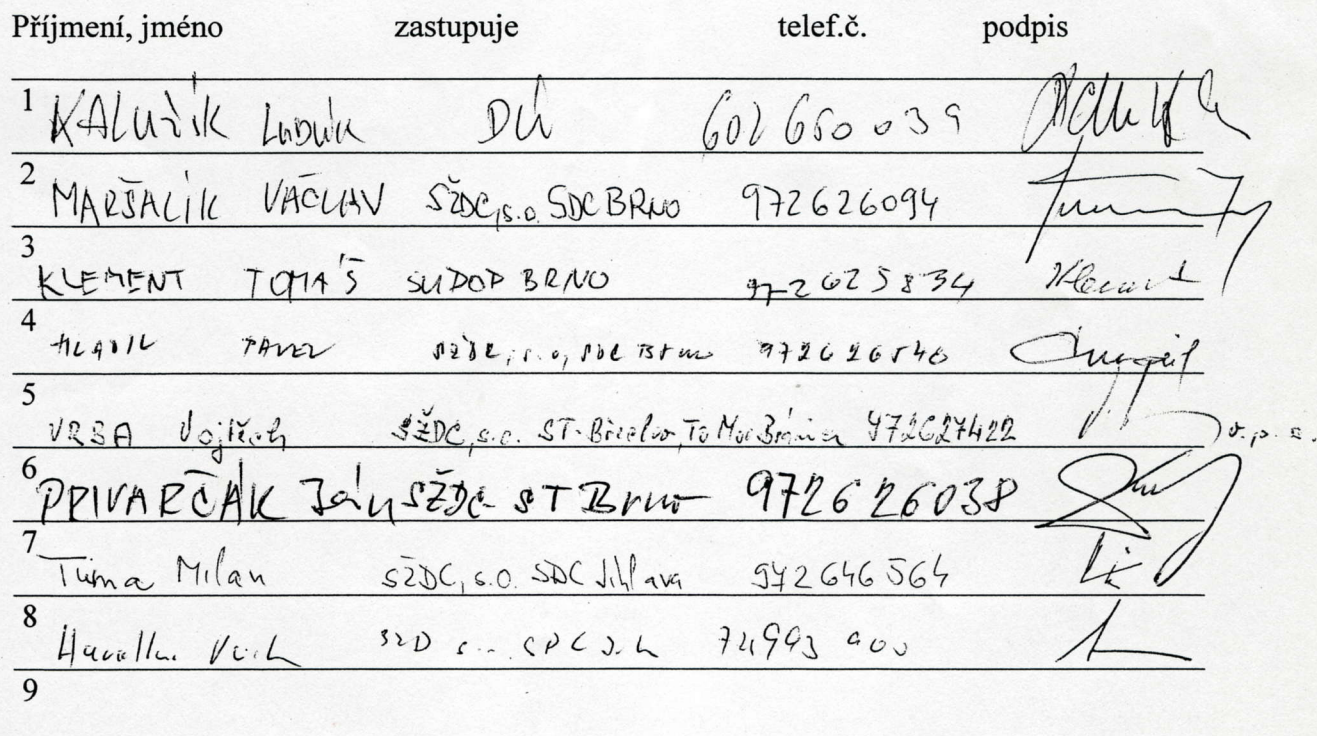 Příjmení, jméno zastupuje telef.č. podpis
1 KALUŽÍK Luděk DÚ 602 650 039
2 MARŠALÍK VÁCLAV SŽDC,s.o. SDC BRNO 972626094
3 KLEMENT TOMÁŠ SUDOP BRNO 972625834 Klement
4 HLADIK PAVEL SŽDC, s.o, SDC Brno 972626546
5 VRBA Vojtěch SŽDC, s.o. ST-Břeclav, To Mor Bránice 972627422
6 PRIVARČÁK Ján SŽDC ST Brno 972626038
7 Tůma Milan SŽDC, s.o. SDC Jihlava 972646564
8
9